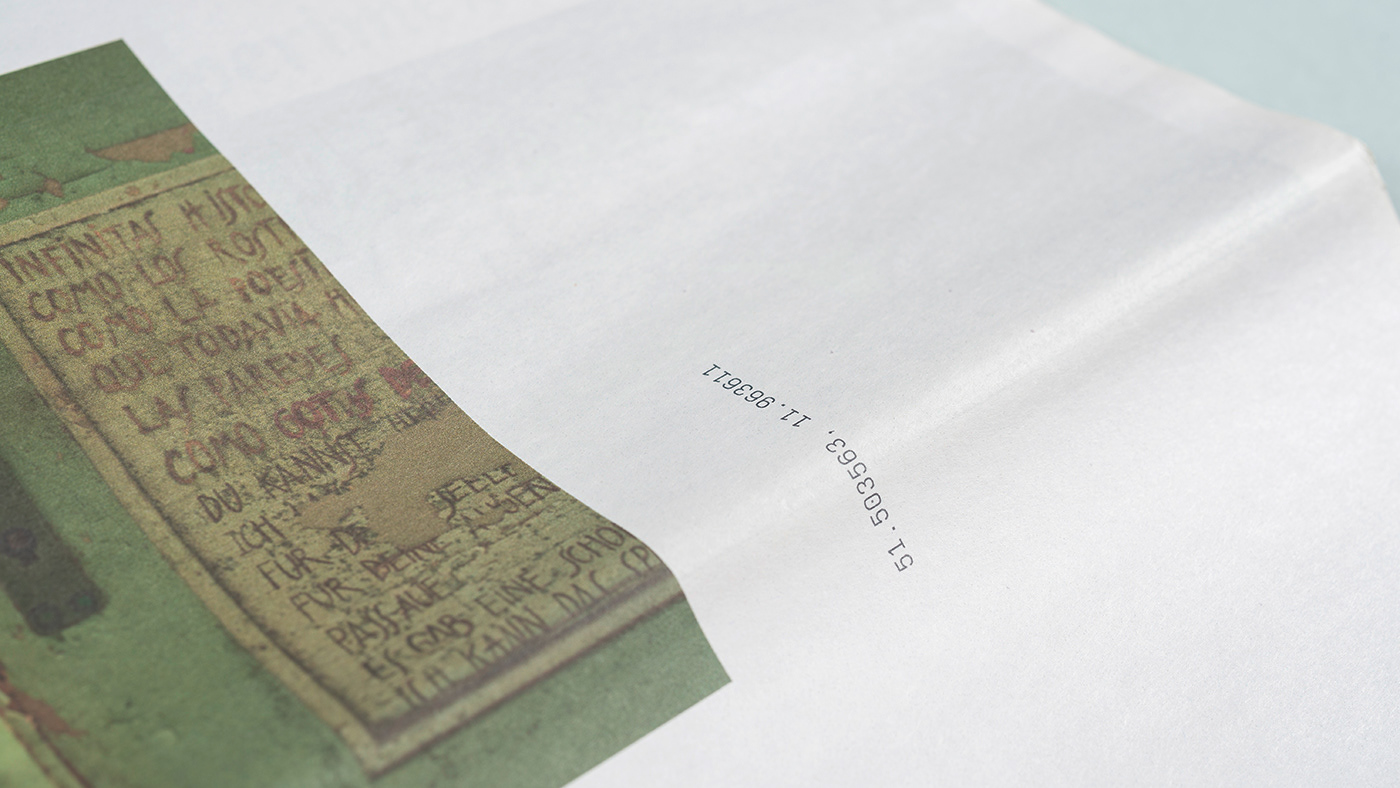 INFINITAS HISTO
COMO LOS ROST
COMO LA POESI
QUE TODAVIA
LAS PAREDES
COMO
DU KANNST
ICH
FÜR
FÜR DEINE AUGEN
PASSAUF
ES GAB EINE SCHÖ
ICH KANN DAS
51.503563, 11.963611